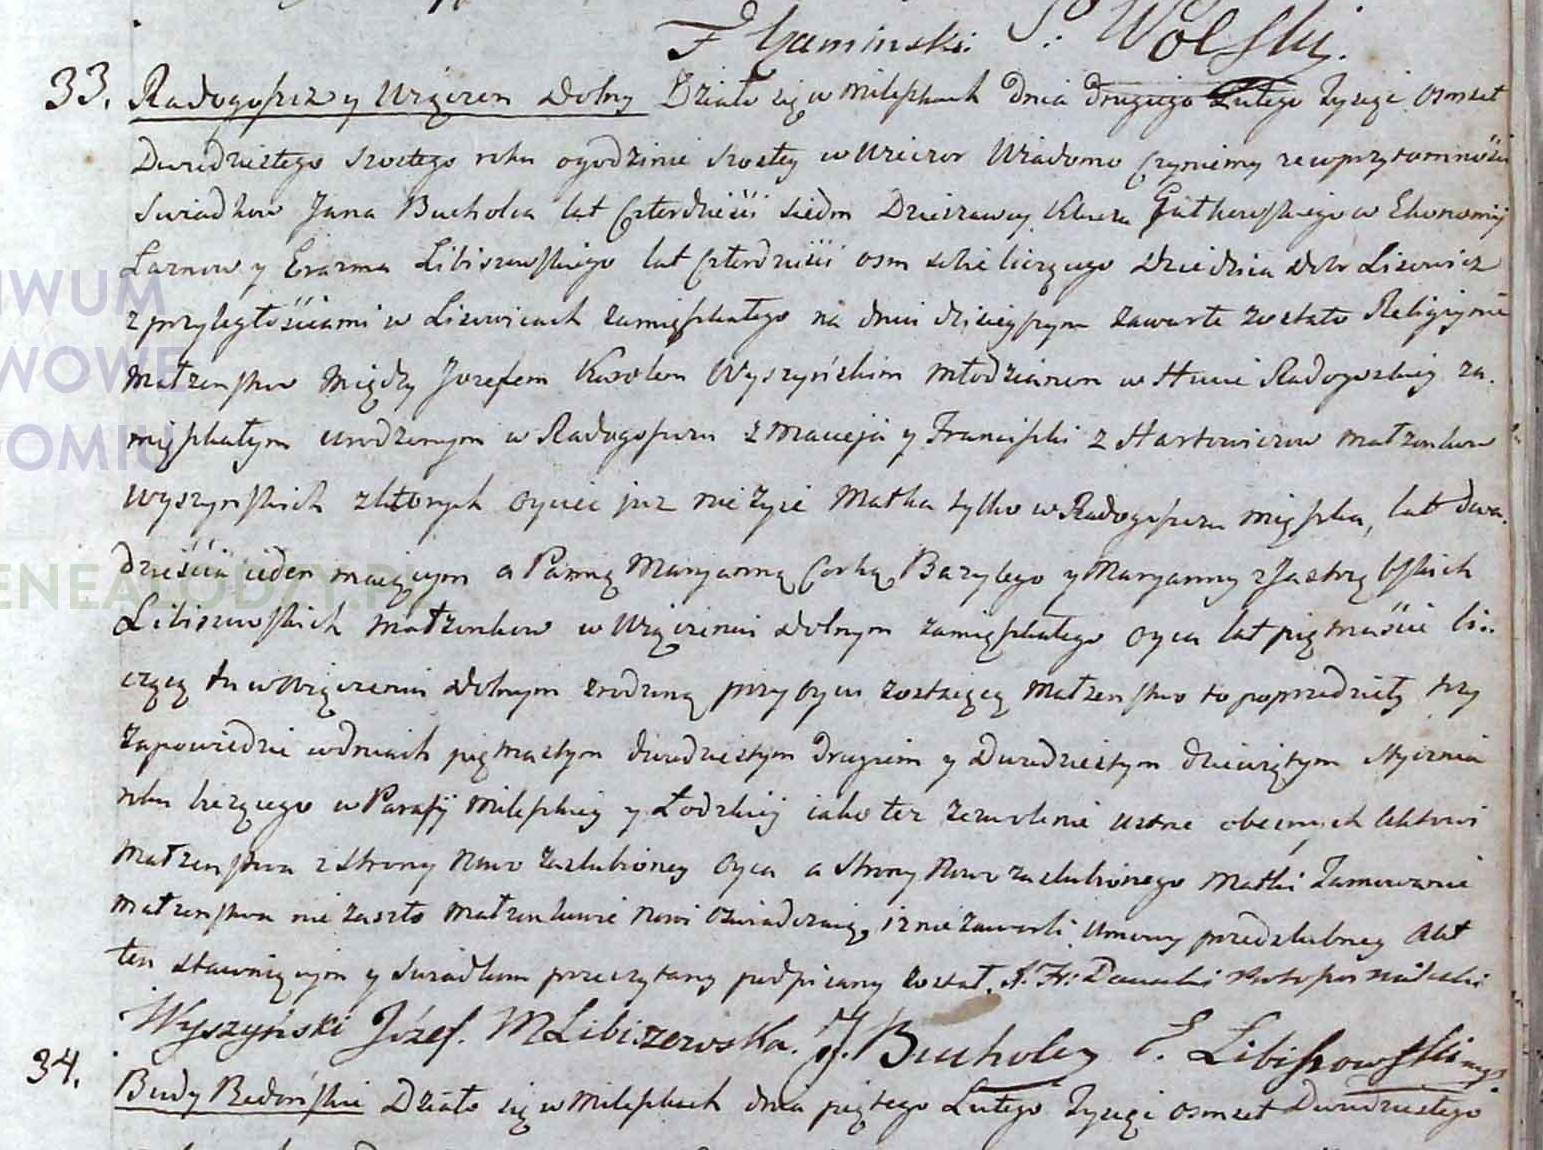 F Kaminski. S: Wolski.
33. Radogoszcz y Wiączen Dolny Działo się w Mileszkach Dnia drugiego Lutego Tysiąc osmset
Dwudziestego szostego roku o godzinie szostey w wieczor Wiadomo Czyniemy ze w przytomności
Swiadkow Jana Bucholca lat Czterdzieści siedm Dzierzawcy Klucza Gutkowskiego w Ekonomij
Łaznow y Erazma Libiszowskiego lat Czterdzieści osm sobie liczącego Dziedzica Dobr Lisowicz
z przyległościami w Lisowicach zamięszkałego na dniu dzisieyszym zawarte zostało Religiyne
Małzenstwo między Jozefem Karolem Wyszyńskim Młodzianem w Hucie Radogoskiey za.
mięszkałym urodzonym w Radogoszczu z Macieja y Franciszki z Hartowiczow Małzonkow
Wyszynskich z ktorych oyciec juz nie zyie Matka tylko w Radogoszczu mięszka, lat dwa.
dzieścia ieden maiącym a Panną Maryanną Corką Bazylego y Maryanny z Jastrzębskich
Libiszewskich Małzonkow w Wiączeniu Dolnym zamięszkałego oyca lat piętnaście li..
czącą tu w Wiączeniu Dolnym z rodziną przy oycu zostaiącą Małzenstwo to poprzedziły trzy
Zapowiedzie w dniach piętnastym dwudziestym drugim y Dwudziestym dziewiątym stycznia
roku biezącego w Parafij Mileskiey y Łodzkiey iako tez zezwolenie ustne obecnych aktowi
Małzenstwa z strony Nowo zaslubioney oyca a strony Nowo zaslubionego Matki Tamowanie
małzenstwa nie zaszło Małzonkowie nowi oswiadczaią, iz nie zawarli umowy przedslubney Akt
ten stawaiącym y swiadkom przeczytany podpisany został.
Wyszyński Józef. M Libiszewska. J. Bucholcz E. Libiszowski
34. Budy Bedońskie Działo się w Mileszkach dnia piątego Lutego Tysiąc osmset Dwudziestego